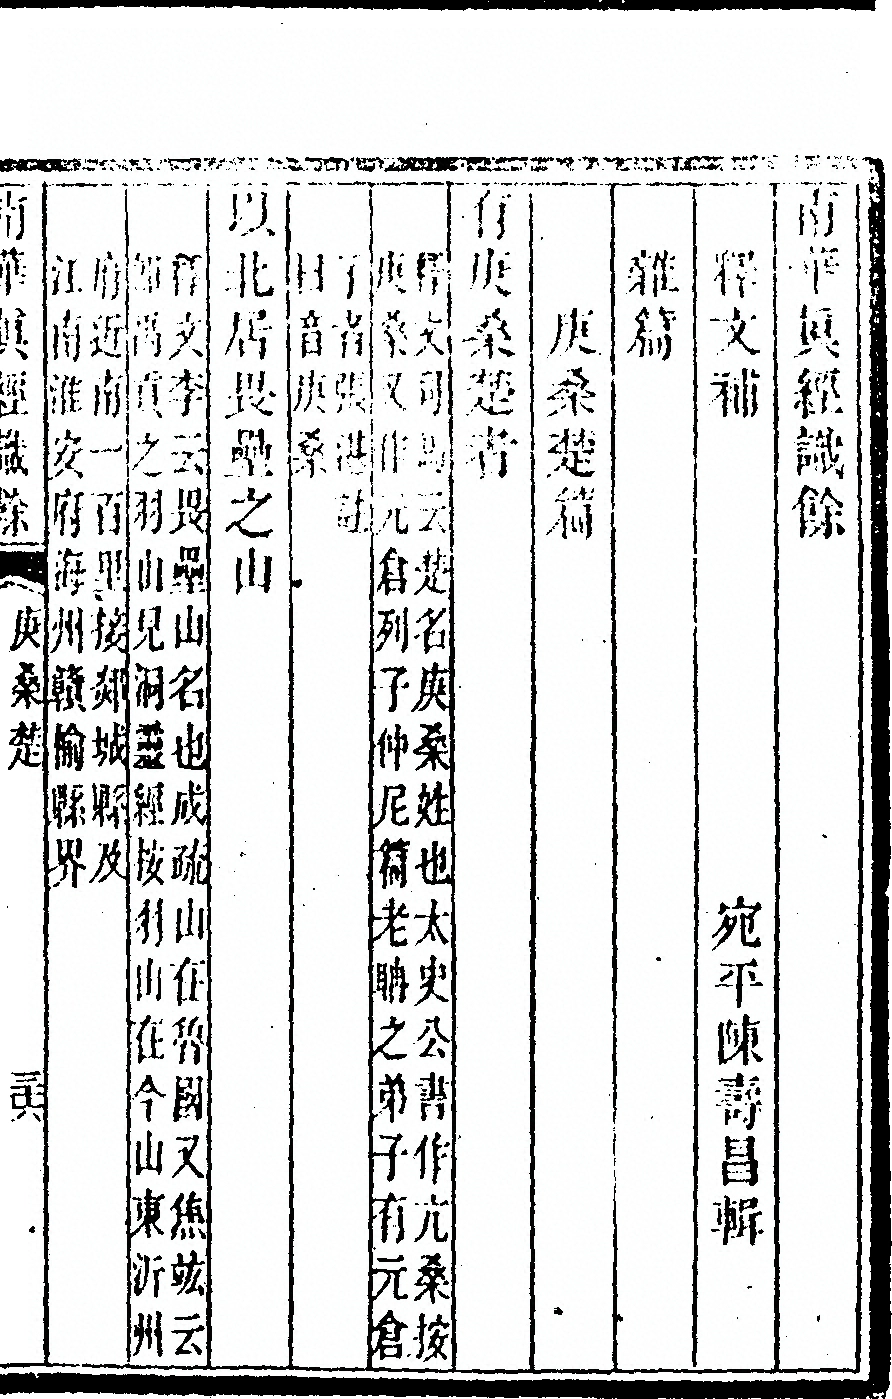 南華真經識餘
釋文補
宛平陳壽昌輯
雜篇
庚桑楚篇
有庚桑楚者
釋文司馬云楚名庚桑姓也太史公書作亢桑按
庚桑又作亢倉列子仲尼篇老聃之弟子有亢倉
子者張湛註
曰音庚桑
以北居畏壘之山
釋文李云畏壘山名也成疏山在魯國又焦竑云
即禹貢之羽山見洞靈經按羽山在今山東沂州
府近南一百里接郯城縣及
江南淮安府海州贛榆縣界
南華真經識餘
庚桑楚